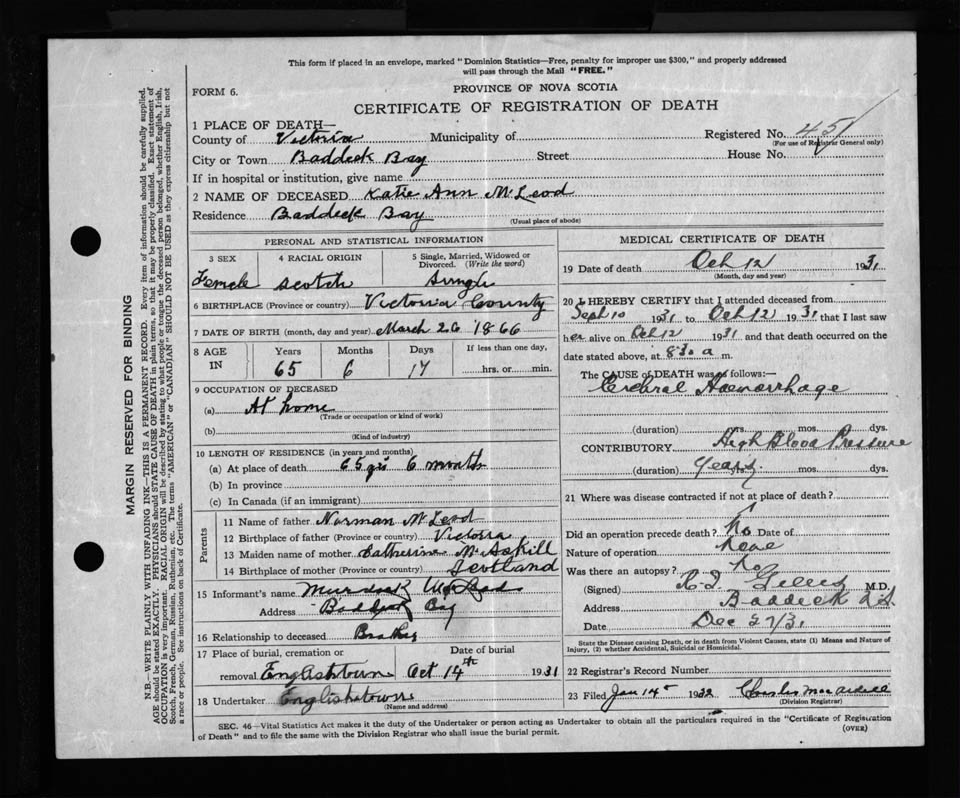 This form if placed in an envelope, marked "Dominion Statistics—Free, penalty for improper use $300," and properly addressed
will pass through the Mail "FREE."
FORM 6.
PROVINCE OF NOVA SCOTIA
CERTIFICATE OF REGISTRATION OF DEATH
1 PLACE OF DEATH—
County of Victoria Municipality of Registered No. 451
(For use of Registrar General only)
City or Town Baddeck Bay Street House No.
If in hospital or institution, give name
2 NAME OF DECEASED Katie Ann McLeod
Residence Baddeck Bay
(Usual place of abode)
PERSONAL AND STATISTICAL INFORMATION
3 SEX 4 RACIAL ORIGIN 5 Single, Married, Widowed or
Divorced. (Write the word)
Female Scotch Single
6 BIRTHPLACE (Province or country) Victoria County
7 DATE OF BIRTH (month, day and year) March 26 1866
8 AGE IN Years Months Days If less than one day,
65 6 17 hrs. or min.
9 OCCUPATION OF DECEASED
(a) At home
(Trade or occupation or kind of work)
(b)
(Kind of industry)
10 LENGTH OF RESIDENCE (in years and months)
(a) At place of death 65 yrs 6 months
(b) In province
(c) In Canada (if an immigrant)
Parents
11 Name of father Norman McLeod
12 Birthplace of father (Province or country) Victoria
13 Maiden name of mother Catherine McAskill
14 Birthplace of mother (Province or country) Scotland
15 Informant's name Murdock McLeod
Address Baddeck Bay
16 Relationship to deceased Brother
17 Place of burial, cremation or Date of burial
removal Englishtown Oct 14th 1931
18 Undertaker Englishtown
(Name and address)
MEDICAL CERTIFICATE OF DEATH
19 Date of death Oct 12 1931
(Month, day and year)
20 I HEREBY CERTIFY that I attended deceased from
Sept 10 1931 to Oct 12 1931 that I last saw
her alive on Oct 12 1931 and that death occurred on the
date stated above, at 8 30 a m.
The CAUSE OF DEATH was as follows:—
Cerebral Haemorrhage
(duration) yrs. mos. dys.
CONTRIBUTORY High Blood Pressure
(duration) Years mos. dys.
21 Where was disease contracted if not at place of death?
Did an operation precede death? No Date of
Nature of operation None
Was there an autopsy? No
(Signed) Gillis M.D.
Address Baddeck N.S.
Date Dec 27/31
State the Disease causing Death, or in death from Violent Causes, state (1) Means and Nature of
Injury, (2) whether Accidental, Suicidal or Homicidal.
22 Registrar's Record Number
23 Filed Jan 14 1932 Charles
(Division Registrar)
SEC. 46—Vital Statistics Act makes it the duty of the Undertaker or person acting as Undertaker to obtain all the particulars required in the "Certificate of Registration
of Death" and to file the same with the Division Registrar who shall issue the burial permit.
(OVER)
MARGIN RESERVED FOR BINDING
N.B.—WRITE PLAINLY WITH UNFADING INK—THIS IS A PERMANENT RECORD. Every item of information should be carefully supplied.
AGE should be stated EXACTLY. PHYSICIANS should STATE CAUSE OF DEATH in plain terms, so that it may be properly classified. Exact statement of
OCCUPATION is very important. RACIAL ORIGIN will be described by stating to what people or tongue the deceased person belonged, whether English, Irish,
Scotch, French, German, Russian, Ruthenian, etc. The terms "AMERICAN" or "CANADIAN" SHOULD NOT BE USED as they express citizenship but not
a race or people. See instructions on back of Certificate.